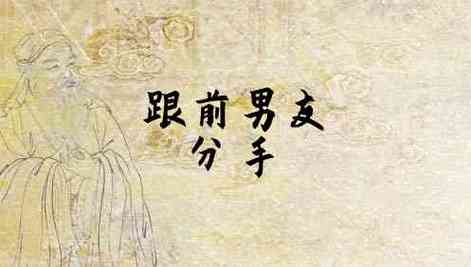 跟前男友
分手